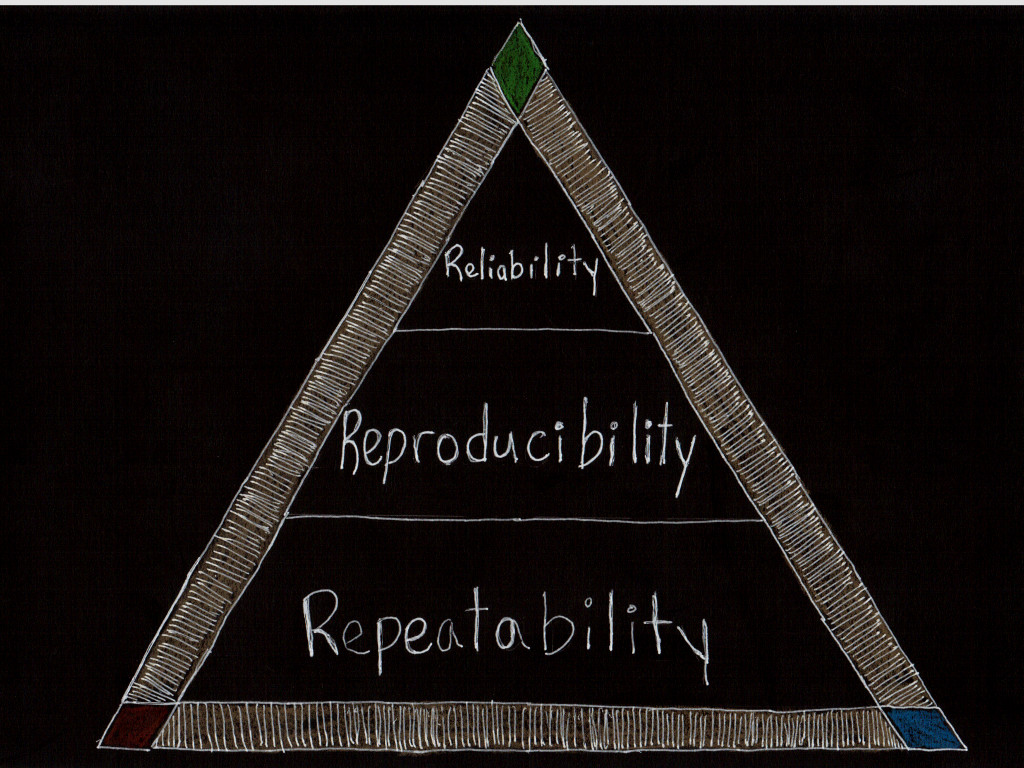 Reliability
Reproducibility
Repeatability